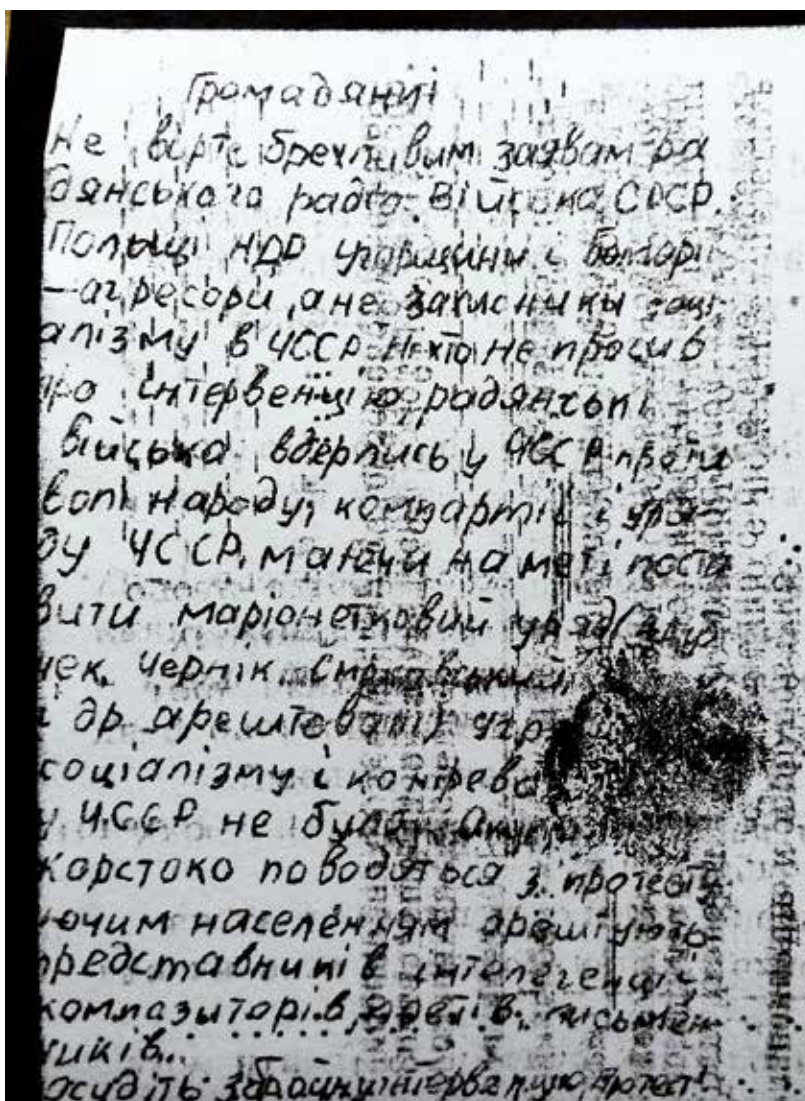 Громадяни!
Не вірте брехливим заявам ра
дянського радіо. Війська СРСР.
Польщі НДР Угорщини і Болгарії
—агресори, а не захисники соці
алізму в ЧССР. Ніхто не просив
про інтервенцію, радянські
війська вдерлись у ЧССР проти
волі народу, компартії і уря-
ду ЧССР, маючи на меті поста
вити маріонетковий уряд (Дуб
чек, Чернік, Смрковський,
і др. арештовані)
соціалізму і
у ЧССР не було.
жорстоко поводяться з протесту
ючим населенням арештують
представників інтелегенції
композиторів, поетів. письмен-
ників..
осудіть збройну